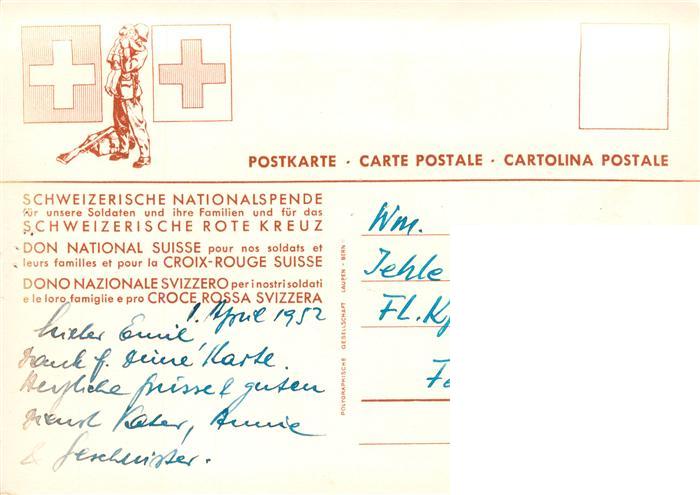 POSTKARTE · CARTE POSTALE · CARTOLINA POSTALE
SCHWEIZERISCHE NATIONALSPENDE
für unsere Soldaten und ihre Familien und für das
SCHWEIZERISCHE ROTE KREUZ
DON NATIONAL SUISSE pour nos soldats et
leurs familles et pour la CROIX-ROUGE SUISSE
DONO NAZIONALE SVIZZERO per i nostri soldati
e le loro famiglie e pro CROCE ROSSA SVIZZERA
1. April 1952
Lieber Emil,
Dank f. Deine Karte.
Herzliche Grüsse & guten
Dienst Vater, Annie
& Geschwister.
POLYGRAPHISCHE GESELLSCHAFT LAUPEN-BERN
Wm.
Jehle
Fl. Kp
Fe